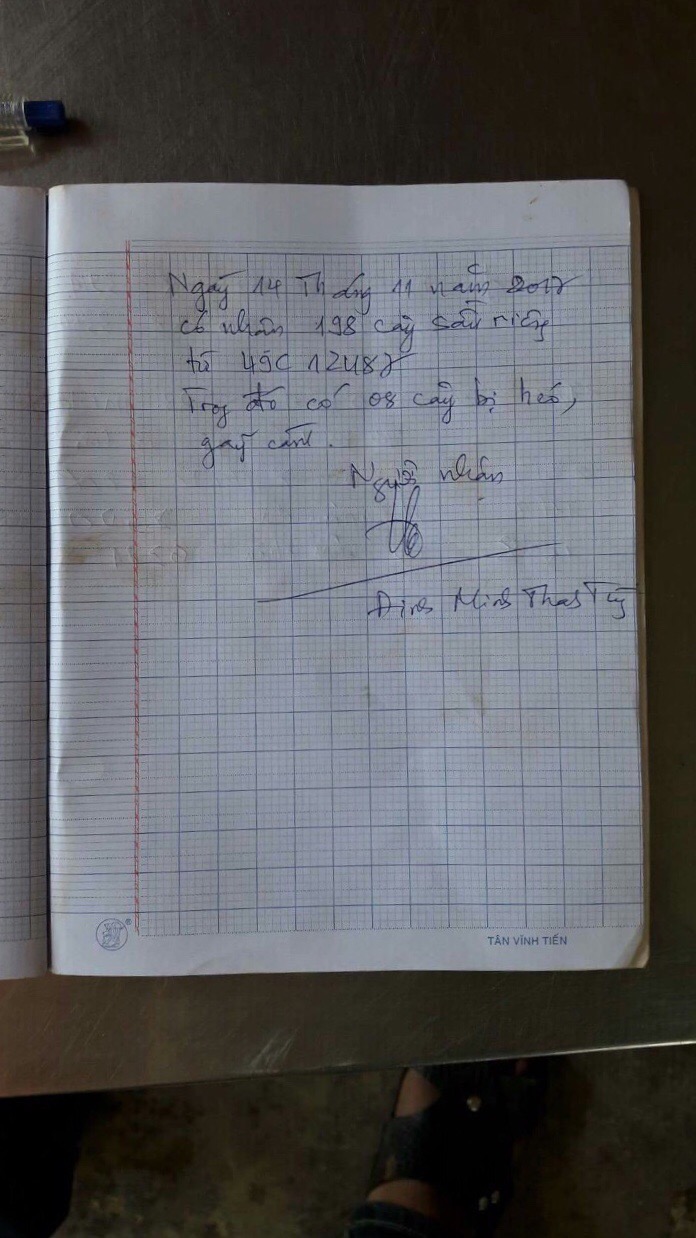 Ngày 14 Tháng 11 năm 2017
có nhận 198 cây sầu riêng
từ 49C 12487
Trong đó có 08 cây bị héo,
gãy cành.
Người nhận
Đinh Minh
TÂN VĨNH TIẾN